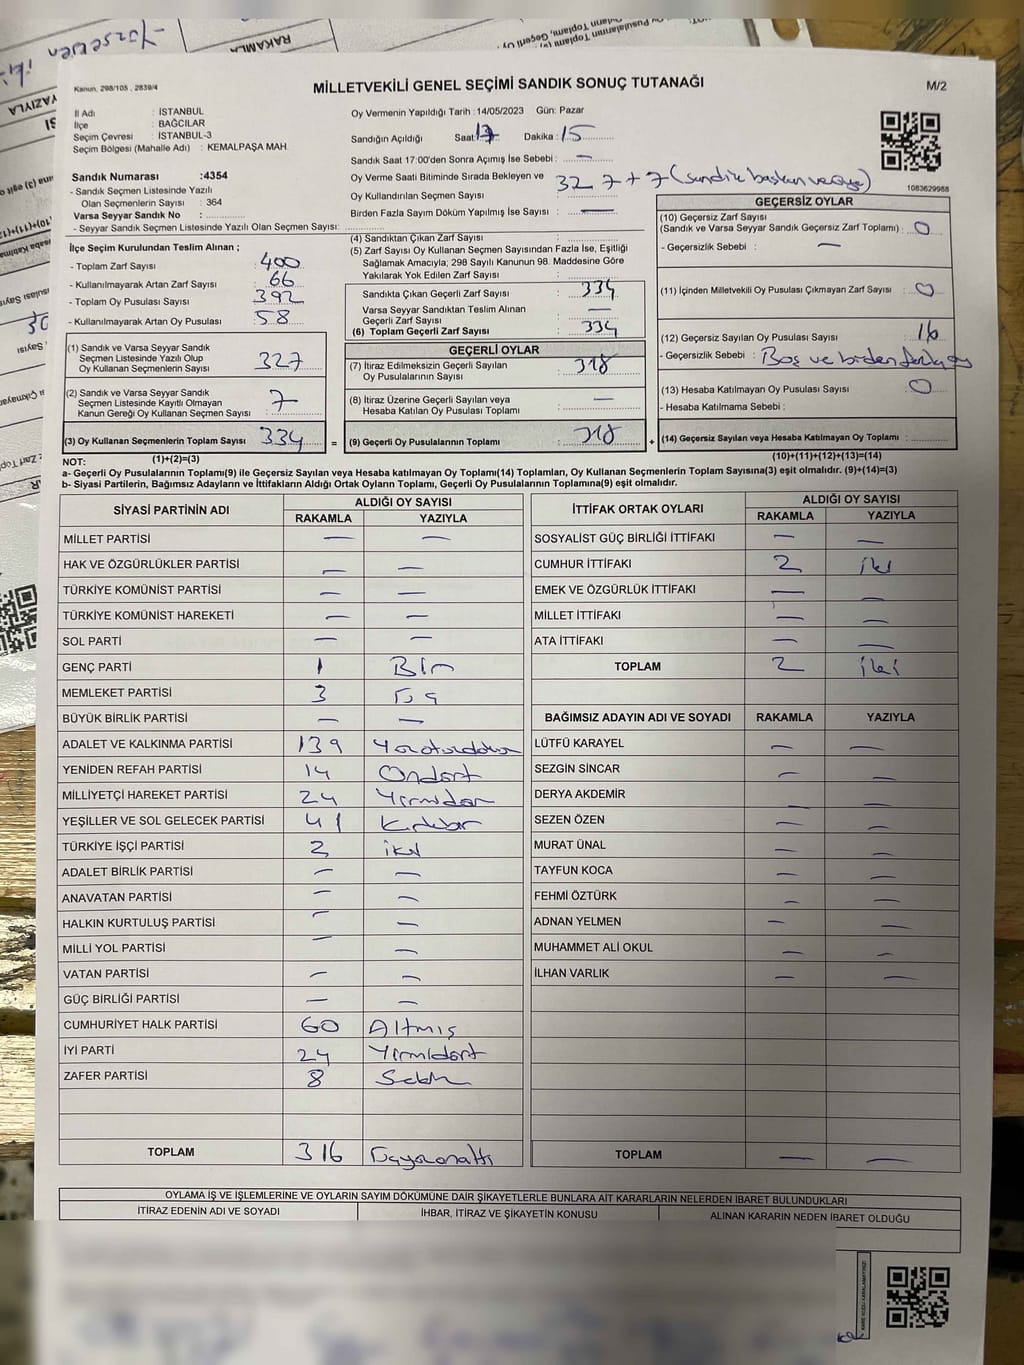 MİLLETVEKİLİ GENEL SEÇİMİ SANDIK SONUÇ TUTANAĞI
M/2
Kanun, 298/105 , 2839/4
İl Adı : İSTANBUL
İlçe : BAĞCILAR
Seçim Çevresi : İSTANBUL-3
Seçim Bölgesi (Mahalle Adı) : KEMALPAŞA MAH.
Oy Vermenin Yapıldığı Tarih : 14/05/2023 Gün: Pazar
Sandığın Açıldığı Saat: 17 Dakika : 15
Sandık Saat 17:00'den Sonra Açımış İse Sebebi : —
Oy Verme Saati Bitiminde Sırada Bekleyen ve
Oy Kullandırılan Seçmen Sayısı : 327+7 (sandık başkan ve üye)
Birden Fazla Sayım Döküm Yapılmış İse Sayısı : —
1083629988
Sandık Numarası :4354
- Sandık Seçmen Listesinde Yazılı
Olan Seçmenlerin Sayısı : 364
Varsa Seyyar Sandık No :
- Seyyar Sandık Seçmen Listesinde Yazılı Olan Seçmen Sayısı:
İlçe Seçim Kurulundan Teslim Alınan ;
- Toplam Zarf Sayısı : 400
- Kullanılmayarak Artan Zarf Sayısı : 66
- Toplam Oy Pusulası Sayısı : 392
- Kullanılmayarak Artan Oy Pusulası : 58
(1) Sandık ve Varsa Seyyar Sandık
Seçmen Listesinde Yazılı Olup
Oy Kullanan Seçmenlerin Sayısı : 327
(2) Sandık ve Varsa Seyyar Sandık
Seçmen Listesinde Kayıtlı Olmayan
Kanun Gereği Oy Kullanan Seçmen Sayısı : 7
(3) Oy Kullanan Seçmenlerin Toplam Sayısı : 334
(4) Sandıktan Çıkan Zarf Sayısı :
(5) Zarf Sayısı Oy Kullanan Seçmen Sayısından Fazla İse, Eşitliği
Sağlamak Amacıyla, 298 Sayılı Kanunun 98. Maddesine Göre
Yakılarak Yok Edilen Zarf Sayısı :
Sandıkta Çıkan Geçerli Zarf Sayısı : 334
Varsa Seyyar Sandıktan Teslim Alınan
Geçerli Zarf Sayısı : —
(6) Toplam Geçerli Zarf Sayısı : 334
GEÇERLİ OYLAR
(7) İtiraz Edilmeksizin Geçerli Sayılan
Oy Pusulalarının Sayısı : 318
(8) İtiraz Üzerine Geçerli Sayılan veya
Hesaba Katılan Oy Pusulası Toplamı : —
= (9) Geçerli Oy Pusulalarının Toplamı : 318
GEÇERSİZ OYLAR
(10) Geçersiz Zarf Sayısı
(Sandık ve Varsa Seyyar Sandık Geçersiz Zarf Toplamı) : 0
- Geçersizlik Sebebi : —
(11) İçinden Milletvekili Oy Pusulası Çıkmayan Zarf Sayısı : 0
(12) Geçersiz Sayılan Oy Pusulası Sayısı : 16
- Geçersizlik Sebebi : Boş ve birden fazla oy
(13) Hesaba Katılmayan Oy Pusulası Sayısı : 0
- Hesaba Katılmama Sebebi :
+ (14) Geçersiz Sayılan veya Hesaba Katılmayan Oy Toplamı :
NOT: (1)+(2)=(3) (10)+(11)+(12)+(13)=(14)
a- Geçerli Oy Pusulalarının Toplamı(9) ile Geçersiz Sayılan veya Hesaba katılmayan Oy Toplamı(14) Toplamları, Oy Kullanan Seçmenlerin Toplam Sayısına(3) eşit olmalıdır. (9)+(14)=(3)
b- Siyasi Partilerin, Bağımsız Adayların ve İttifakların Aldığı Ortak Oyların Toplamı, Geçerli Oy Pusulalarının Toplamına(9) eşit olmalıdır.
SİYASİ PARTİNİN ADI ALDIĞI OY SAYISI
RAKAMLA YAZIYLA
MİLLET PARTİSİ — —
HAK VE ÖZGÜRLÜKLER PARTİSİ — —
TÜRKİYE KOMÜNİST PARTİSİ — —
TÜRKİYE KOMÜNİST HAREKETİ — —
SOL PARTİ — —
GENÇ PARTİ 1 Bir
MEMLEKET PARTİSİ 3 Üç
BÜYÜK BİRLİK PARTİSİ — —
ADALET VE KALKINMA PARTİSİ 139 Yüzotuzdokuz
YENİDEN REFAH PARTİSİ 14 Ondört
MİLLİYETÇİ HAREKET PARTİSİ 24 Yirmidör
YEŞİLLER VE SOL GELECEK PARTİSİ 41 Kırkbir
TÜRKİYE İŞÇİ PARTİSİ 2 iki
ADALET BİRLİK PARTİSİ — —
ANAVATAN PARTİSİ — —
HALKIN KURTULUŞ PARTİSİ — —
MİLLİ YOL PARTİSİ — —
VATAN PARTİSİ — —
GÜÇ BİRLİĞİ PARTİSİ — —
CUMHURİYET HALK PARTİSİ 60 Altmış
İYİ PARTİ 24 Yirmidört
ZAFER PARTİSİ 8 Sekiz
TOPLAM 316 Üçyüzonaltı
İTTİFAK ORTAK OYLARI ALDIĞI OY SAYISI
RAKAMLA YAZIYLA
SOSYALİST GÜÇ BİRLİĞİ İTTİFAKI — —
CUMHUR İTTİFAKI 2 iki
EMEK VE ÖZGÜRLÜK İTTİFAKI — —
MİLLET İTTİFAKI — —
ATA İTTİFAKI — —
TOPLAM 2 iki
BAĞIMSIZ ADAYIN ADI VE SOYADI RAKAMLA YAZIYLA
LÜTFÜ KARAYEL — —
SEZGİN SİNCAR — —
DERYA AKDEMİR — —
SEZEN ÖZEN — —
MURAT ÜNAL — —
TAYFUN KOCA — —
FEHMİ ÖZTÜRK — —
ADNAN YELMEN — —
MUHAMMET ALİ OKUL — —
İLHAN VARLIK — —
TOPLAM — —
OYLAMA İŞ VE İŞLEMLERİNE VE OYLARIN SAYIM DÖKÜMÜNE DAİR ŞİKAYETLERLE BUNLARA AİT KARARLARIN NELERDEN İBARET BULUNDUKLARI
İTİRAZ EDENİN ADI VE SOYADI İHBAR, İTİRAZ VE ŞİKAYETİN KONUSU ALINAN KARARIN NEDEN İBARET OLDUĞU